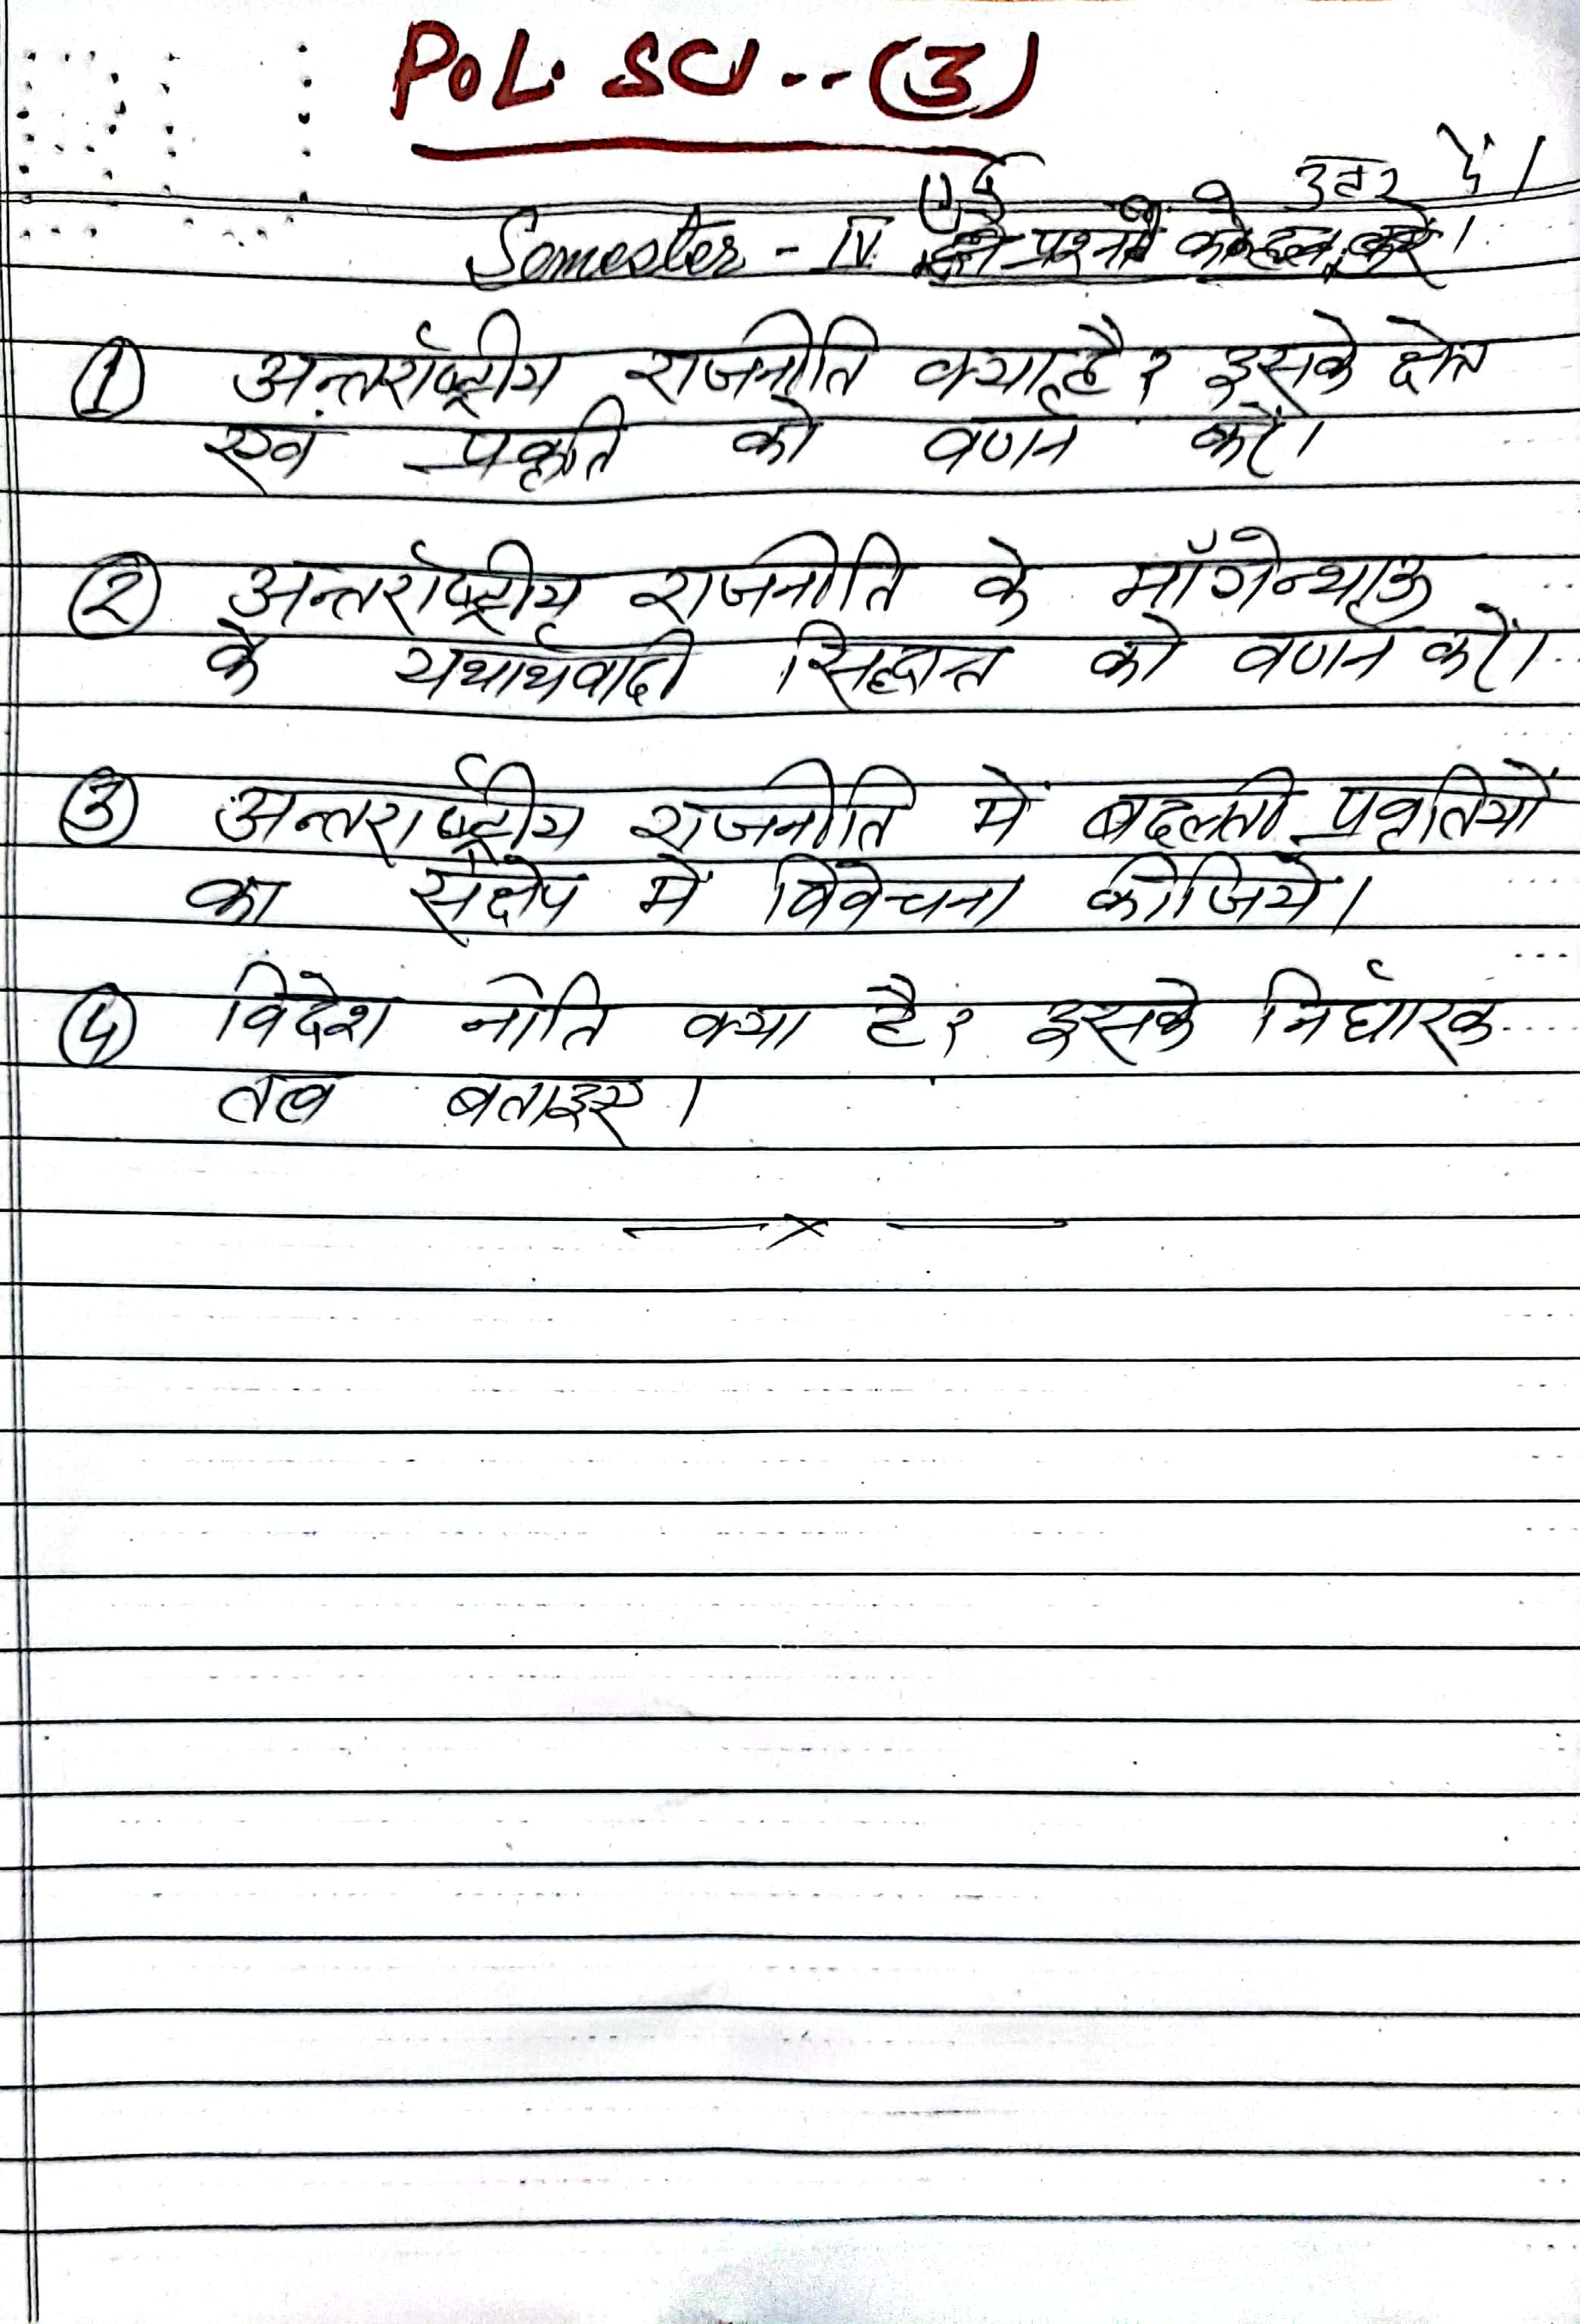 POL. SCI..-(3)
उत्तर दें।
Semester - IV प्रश्नों को हल करें।
① अन्तर्राष्ट्रीय राजनीति क्या है? इसके क्षेत्र
एवं प्रकृति को वर्णन करें।
② अन्तर्राष्ट्रीय राजनीति के मॉर्गेन्थाऊ
के यथार्थवादी सिद्धान्त को वर्णन करें।
③ अन्तर्राष्ट्रीय राजनीति में बदलती प्रवृतियों
का संक्षेप में विवेचना कीजिये।
④ विदेश नीति क्या है? इसके निर्धारक
तत्व बताइए।